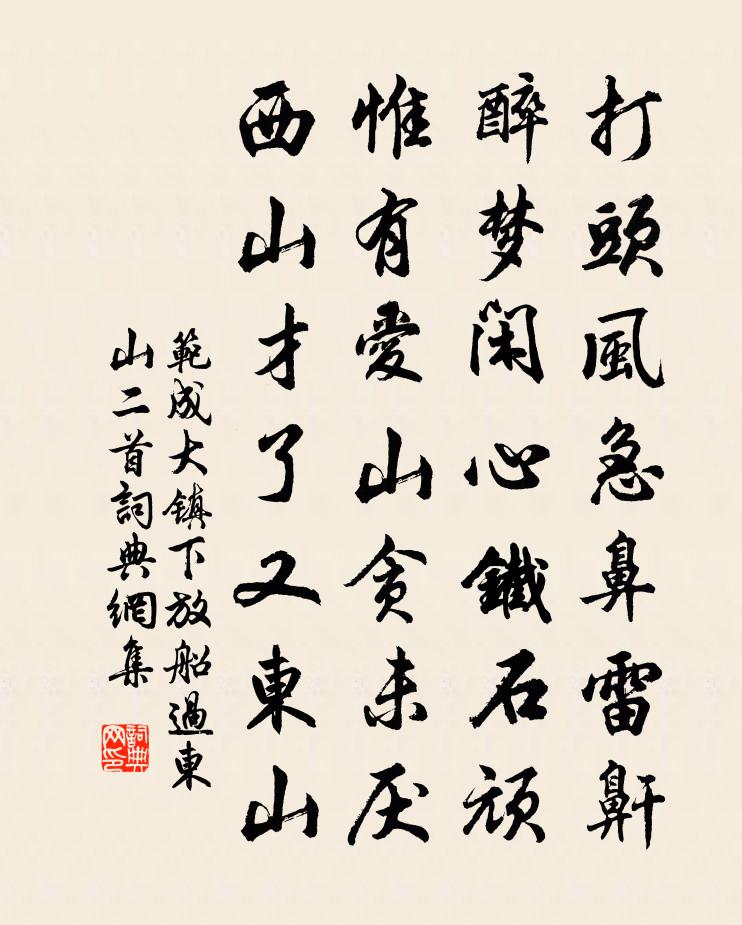 打頭風急鼻雷鼾
醉梦閑心鐵石頑
惟有愛山貪未厌
西山才了又東山
範成大鎮下放船過東
山二首詞典網集
詞典网印